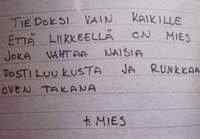 TIEDOKSI VAIN KAIKILLE
ETTÄ LIIKKEELLÄ ON MIES
JOKA VAHTAA NAISIA
POSTILUUKUSTA JA RUNKKAA
OVEN TAKANA
t. MIES